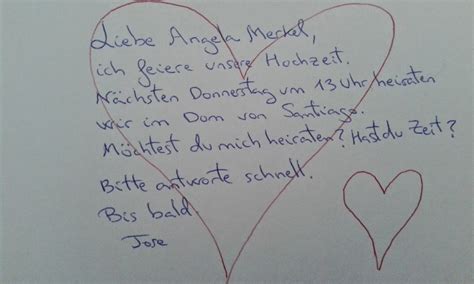 Liebe Angela Meckel,
ich feiere unsere Hochzeit.
Nächsten Donnestag um 13 Uhr heiraten
wir im Dom von Santiago.
Möchtest du mich heiraten? Hast du Zeit?
Bitte antworte schnell.
Bis bald.
Jose